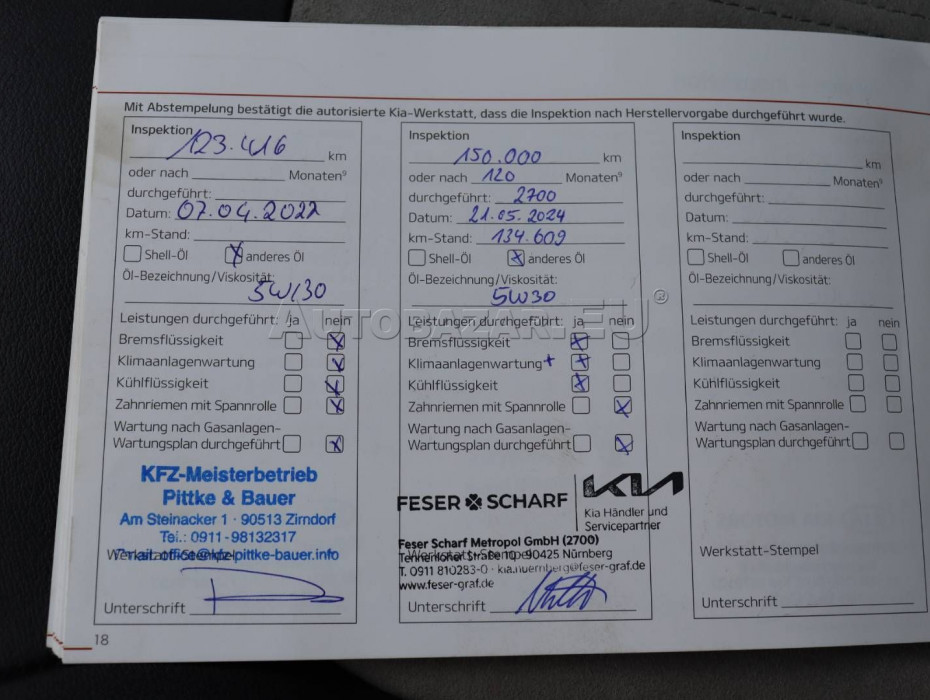 Mit Abstempelung bestätigt die autorisierte Kia-Werkstatt, dass die Inspektion nach Herstellervorgabe durchgeführt wurde.
Inspektion
123.416 km
oder nach Monaten⁹
durchgeführt:
Datum: 07.04.2022
km-Stand:
Shell-Öl x anderes Öl
Öl-Bezeichnung/Viskosität:
5W/30
Leistungen durchgeführt: ja nein
Bremsflüssigkeit x
Klimaanlagenwartung x
Kühlflüssigkeit x
Zahnriemen mit Spannrolle x
Wartung nach Gasanlagen-
Wartungsplan durchgeführt x
KFZ-Meisterbetrieb
Pittke & Bauer
Am Steinacker 1 · 90513 Zirndorf
Tel.: 0911-98132317
Werkstatt-Stempel
E-mail: office@kfz-pittke-bauer.info
Unterschrift
18
Inspektion
150.000 km
oder nach 120 Monaten⁹
durchgeführt: 2700
Datum: 21.05.2024
km-Stand: 134.609
Shell-Öl x anderes Öl
Öl-Bezeichnung/Viskosität:
5W30
Leistungen durchgeführt: ja nein
Bremsflüssigkeit x
Klimaanlagenwartung + x
Kühlflüssigkeit x
Zahnriemen mit Spannrolle x
Wartung nach Gasanlagen-
Wartungsplan durchgeführt x
FESER SCHARF
KIA
Kia Händler und
Servicepartner
Feser Scharf Metropol GmbH (2700)
Werkstatt-Stempel
90425 Nürnberg
T. 0911 810283-0 · kia.nuernberg@feser-graf.de
www.feser-graf.de
Unterschrift
Inspektion
km
oder nach Monaten⁹
durchgeführt:
Datum:
km-Stand:
Shell-Öl anderes Öl
Öl-Bezeichnung/Viskosität:
Leistungen durchgeführt: ja nein
Bremsflüssigkeit
Klimaanlagenwartung
Kühlflüssigkeit
Zahnriemen mit Spannrolle
Wartung nach Gasanlagen-
Wartungsplan durchgeführt
Werkstatt-Stempel
Unterschrift
AUTOBAZAR.EU ®